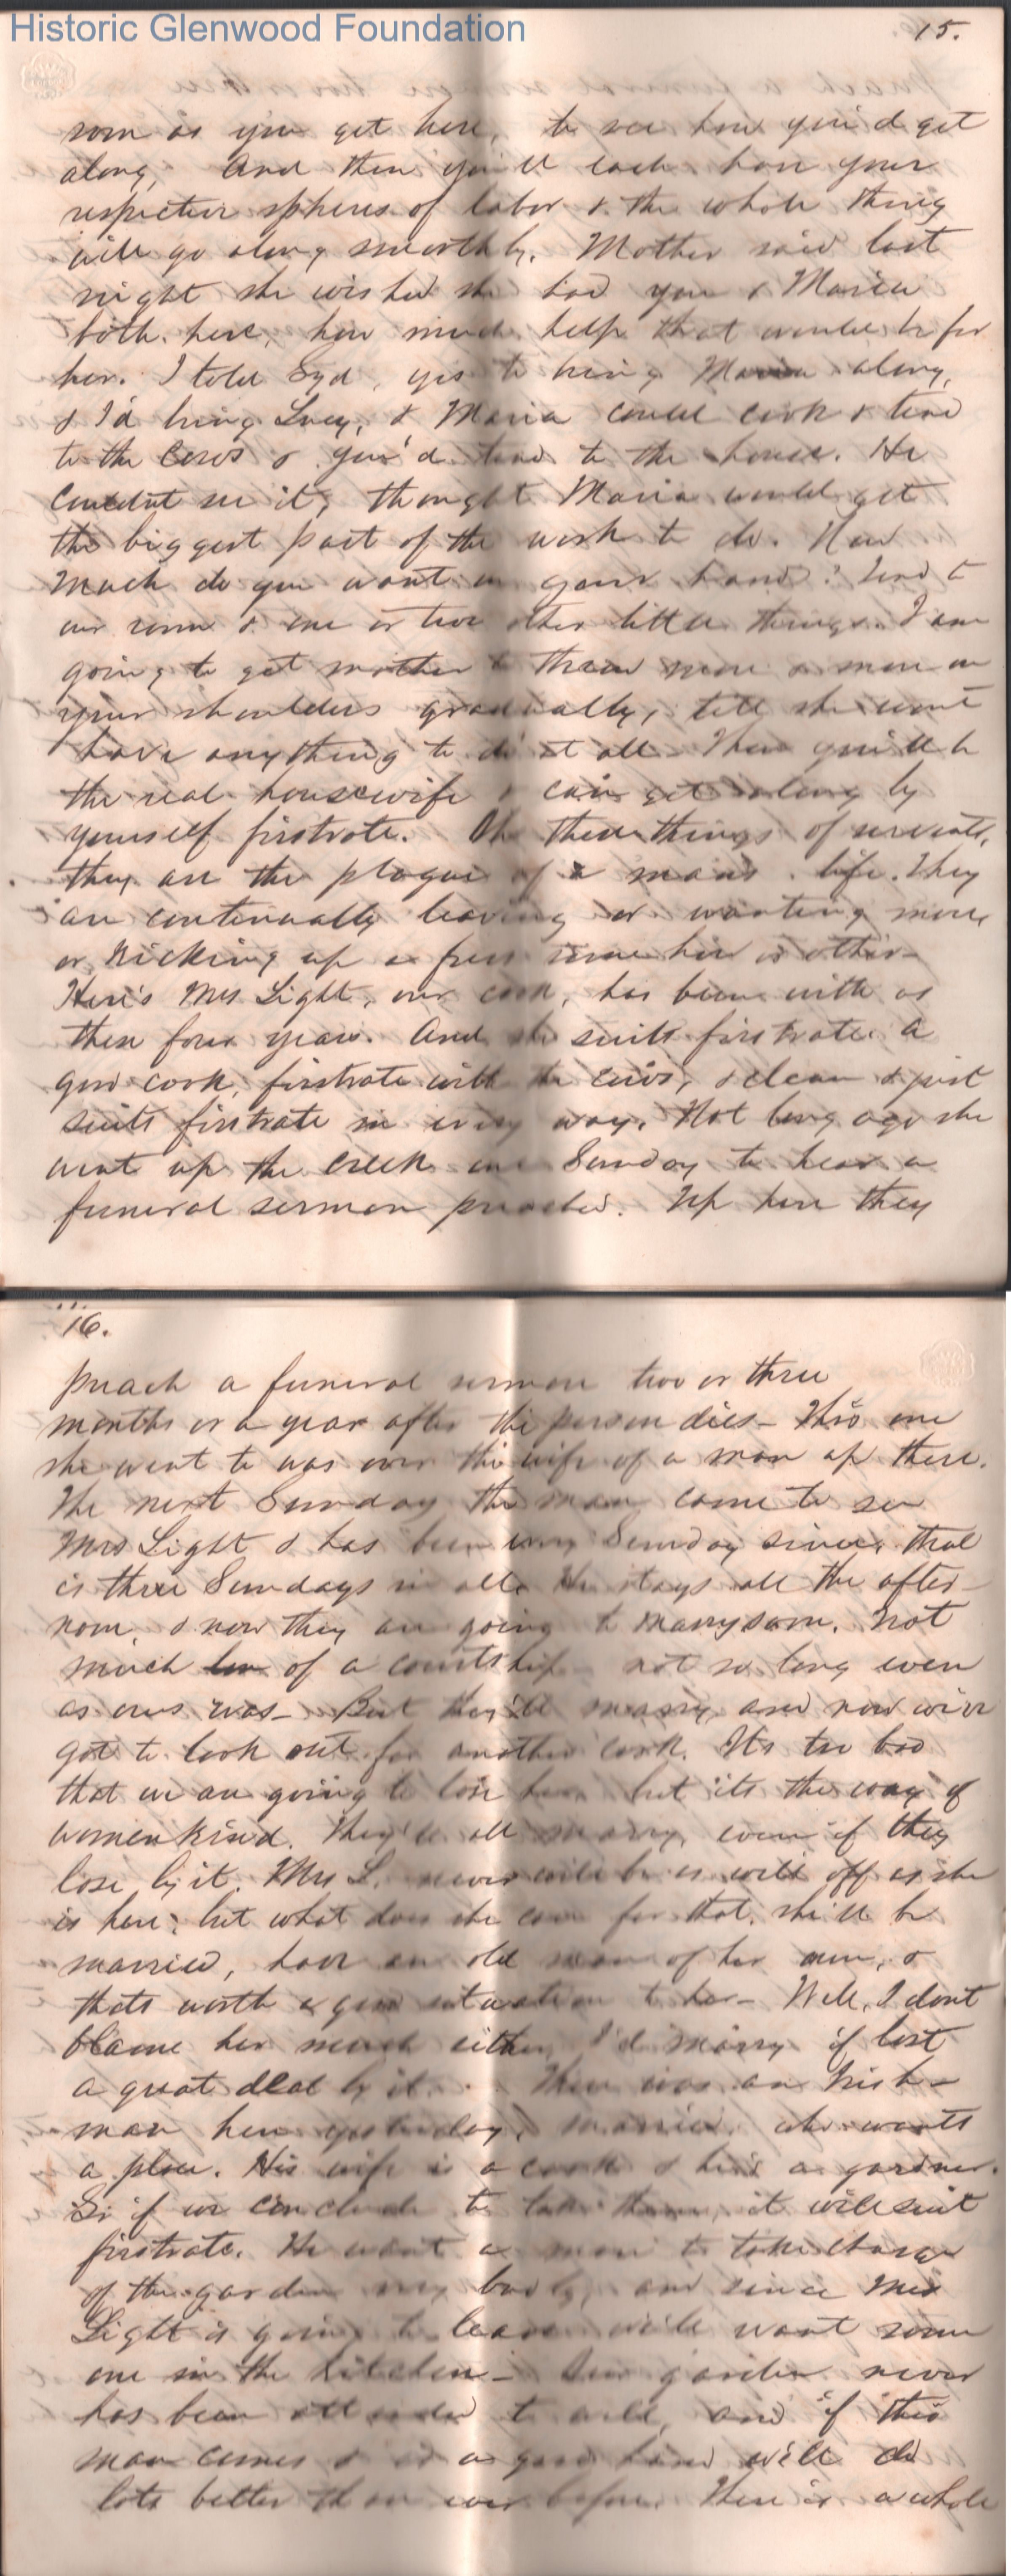 Historic Glenwood Foundation
15.
soon as you get here, to see how you'd get
along, And then you'll each have your
respective spheres of labor & the whole thing
will go along smoothly. Mother said last
night she wished she had you & Maria
both here, how much help that would be for
her. I told Syd, yes to bring Maria along,
& I'd bring Lucy, & Maria could cook & tend
to the cows & you'd tend to the house. He
couldnt see it, thought Maria would get
the biggest part of the work to do. How
much do you want on your hand? Tend to
our room & one or two other little things. I am
going to get mother to throw more & more on
your shoulders gradually, till she wont
have anything to do at all. Then you'll be
the real housewife & can get along by
yourself firstrate. Oh these things of servants,
they are the plague of a mans life. They
are continually leaving or wanting more,
or kicking up a fuss some how or other
Here's Mrs Light, our cook, has been with us
these four years. And she suits firstrate. A
good cook, firstrate with the cows, & clean & just
suits firstrate in every way. Not long ago she
went up the creek one Sunday to hear a
funeral sermon preached. Up here they
16.
preach a funeral sermon two or three
months or a year after the person dies_ This one
she went to was over the wife of a man up there.
The next Sunday the man came to see
Mrs Light & has been every Sunday since, that
is three Sundays in all. He stays all the after-
noon, & now they are going to marry soon. Not
much of a courtship not so long even
as ours was_ But they'll marry and now we're
got to look out for another cook. It's too bad
that we are going to lose her, but its the way of
womenkind. They'll all marry, even if they
lose by it. Mrs L. never will be as well off as she
is here; but what does she care for that, she'll be
married, have an old man of her own, &
thats worth a good situation to her_ Well, I dont
blame her much either, I'd marry if lost
a great deal by it. There was an Irish-
man here yesterday, married, who wants
a place. His wife is a cook & he's a gardner.
So if we conclude to take them, it will suit
firstrate. We want a man to take charge
of the garden very badly, and since Mrs
Light is going to leave will want some
one in the kitchen_ Our garden never
has been attended to well, and if this
man comes & is a good hand will do
lots better than ever before. There is a whole